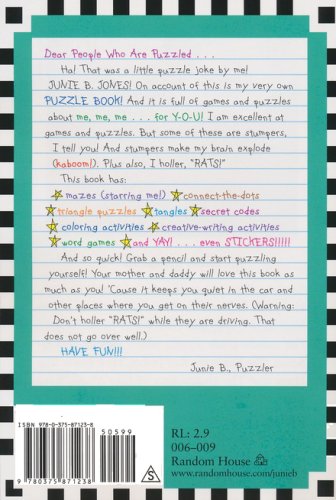 Dear People Who Are Puzzled . . .
Ha! That was a little puzzle joke by me!
JUNIE B. JONES! On account of this is my very own
PUZZLE BOOK! And it is full of games and puzzles
about me, me, me . . . for Y-O-U! I am excellent at
games and puzzles. But some of these are stumpers,
I tell you! And stumpers make my brain explode
(kaboom!). Plus also, I holler, "RATS!"
This book has:
mazes (starring me!) connect-the-dots
triangle puzzles tangles secret codes
coloring activities creative-writing activities
word games and YAY! . . . even STICKERS!!!!!
And so quick! Grab a pencil and start puzzling
yourself! Your mother and daddy will love this book as
much as you! 'Cause it keeps you quiet in the car and
other places where you get on their nerves. (Warning:
Don't holler "RATS!" while they are driving. That
does not go over well.)
HAVE FUN!!!
Junie B., Puzzler
ISBN 978-0-375-87123-8
50599
9 780375 871238
S
RL: 2.9
006–009
Random House
www.randomhouse.com/junieb